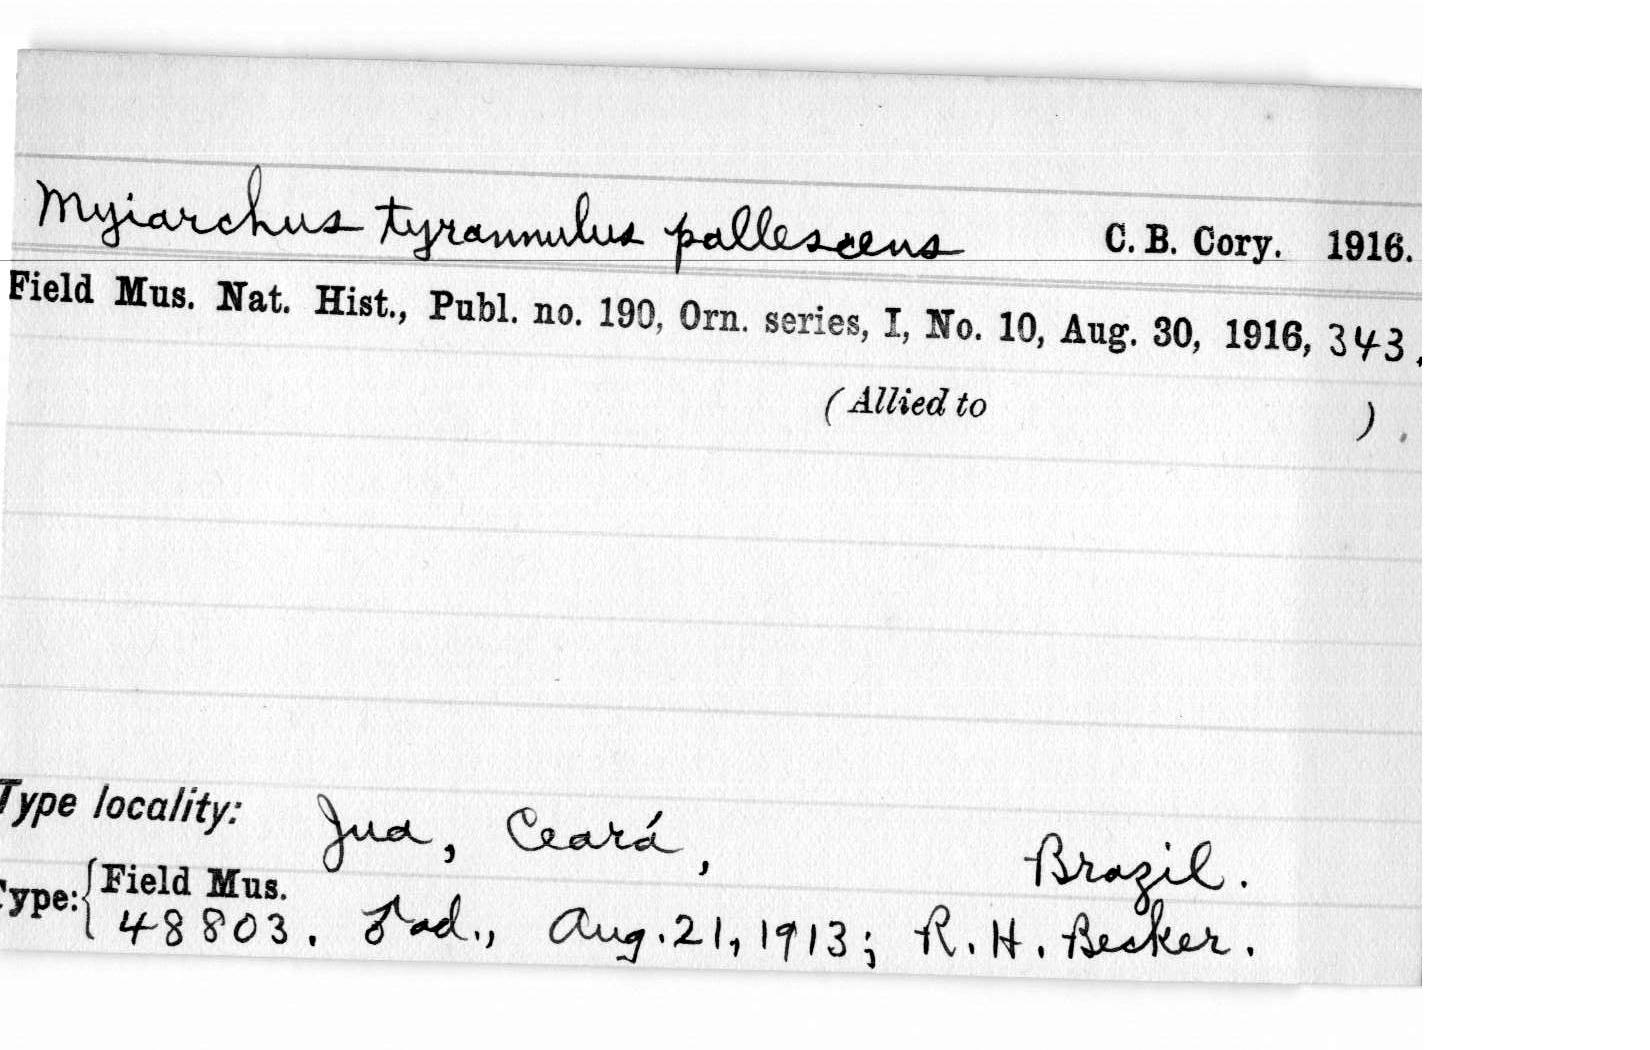 Myiarchus tyrannulus pallescens C. B. Cory. 1916.
Field Mus. Nat. Hist., Publ. no. 190, Orn. series, I, No. 10, Aug. 30, 1916, 343.
(Allied to ).
Type locality: Jua, Ceará, Brazil.
Type: { Field Mus.
48803. ♂ ad., Aug. 21, 1913; R. H. Becker.